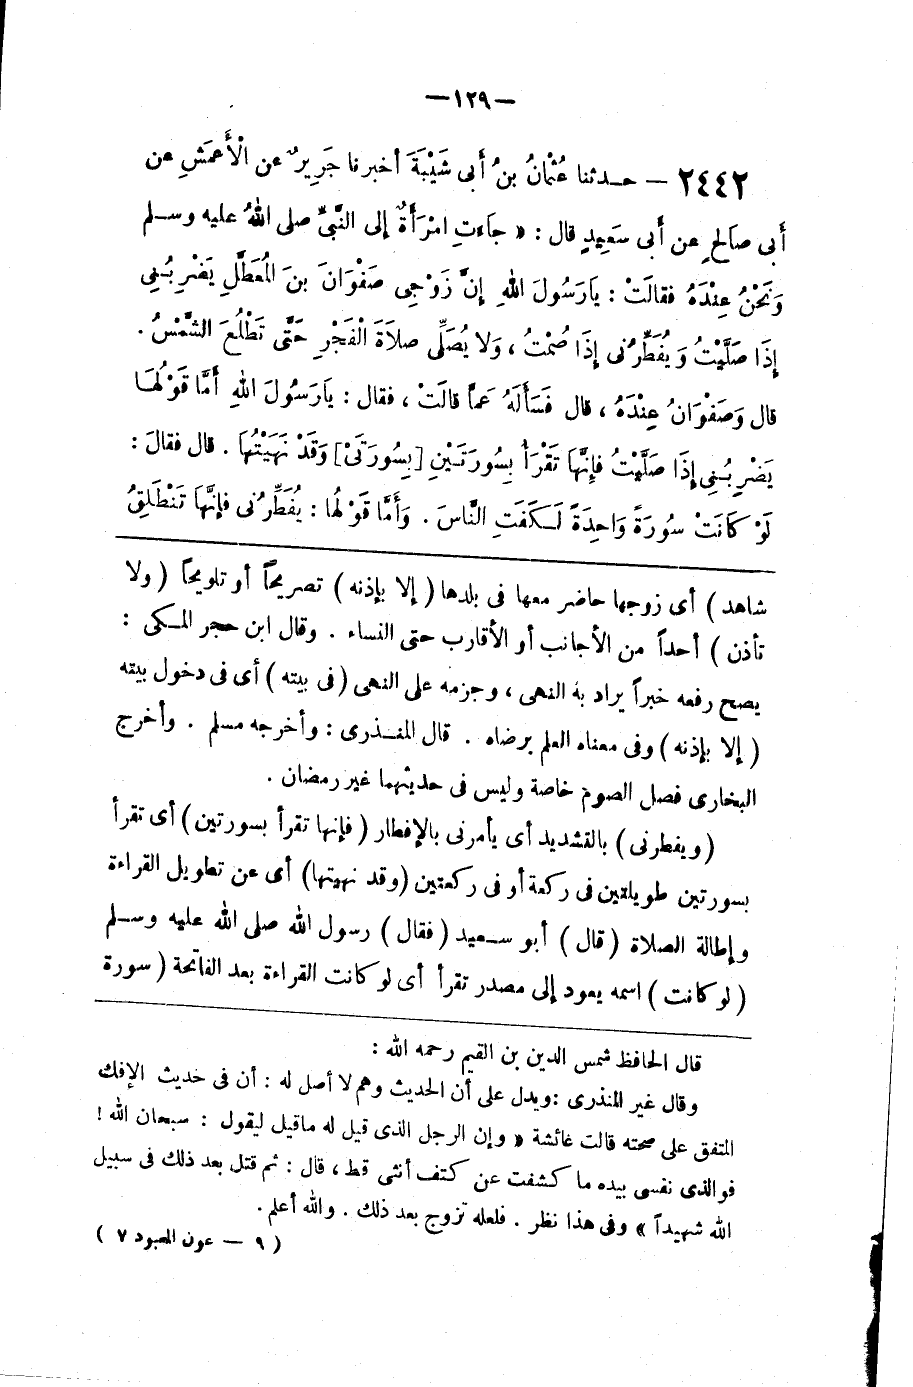 —١٢٩—
٢٤٤٢ — حـدثنا عُثْمَانُ بنُ أَبى شَيْبَةَ أخبرنا جَرِيرٌ عن الْأَعمَشِ عن
أَبى صَالحٍ عن أَبى سَعِيدٍ قال : « جاءتِ امْرَأَةٌ إلى النَّبىِّ صلى اللهُ عليه وسـلم
وَنَحْنُ عِنْدَهُ فقالَتْ : يارَسُولَ اللهِ إنَّ زَوْجِى صَفْوَانَ بنَ المُعَطَّلِ يَضْرِبُـنِى
إذَا صَلَّيْتُ وَيُفَطِّرُنى إذَا صُمْتُ ، وَلا يُصَلِّى صلاَةَ الْفَجْرِ حَتَّى تَطْلُعَ الشَّمْسُ .
قال وَصَفْوَانُ عِنْدَهُ ، قال فَسَأَلَهُ عَمَّا قالَتْ ، فقال : يارَسُولَ اللهِ أَمَّا قَوْلُهَا
يَضْرِبُـنِى إذَا صَلَّيْتُ فإنَّهَا تَقْرَأُ بِسُورَتَـيْنِ [بِسُورَتَىْ] وَقَدْ نَهَيْتُهَا . قال فقالَ :
لَوْ كَانَتْ سُورَةً وَاحِدَةً لَـكَفَتِ النَّاسَ . وَأَمَّا قَوْلُها : يُفَطِّرُنى فإنَّهَا تَنْطَلِقُ
شاهد ) أى زوجها حاضر معها فى بلدها ( إلا بإذنه ) تصريحاً أو تلويحاً ( ولا
تأذن ) أحداً من الأجانب أو الأقارب حتى النساء . وقال ابن حجر المـكى :
يصح رفعه خبراً يراد به النهى ، وجزمه على النهى ( فى بيته ) أى فى دخول بيته
( إلا بإذنه ) وفى معناه العلم برضاه . قال المنـذرى : وأخرجه مسلم . وأخرج
البخارى فصل الصوم خاصة وليس فى حديثهما غير رمضان .
( ويفطرنى ) بالتشديد أى يأمرنى بالإفطار ( فإنها تقرأ بسورتين ) أى تقرأ
بسورتين طويلتين فى ركعة أو فى ركعتين (وقد نهيتها) أى عن تطويل القراءة
وإطالة الصلاة ( قال ) أبو سـعيد ( فقال ) رسول الله صلى الله عليه وسـلم
( لو كانت ) اسمه يعود إلى مصدر تقرأ أى لو كانت القراءة بعد الفاتحة ( سورة
قال الحافظ شمس الدين بن القيم رحمه الله :
وقال غير المنذرى : ويدل على أن الحديث وهم لا أصل له : أن فى حديث الإفك
المتفق على صحته قالت عائشة « وإن الرجل الذى قيل له ماقيل ليقول : سبحان الله !
فوالذى نفسى بيده ما كشفت عن كتف أنثى قط ، قال : ثم قتل بعد ذلك فى سبيل
الله شهيداً » وفى هذا نظر . فلعله تزوج بعد ذلك . والله أعلم .
( ٩ — عون المعبود ٧ )